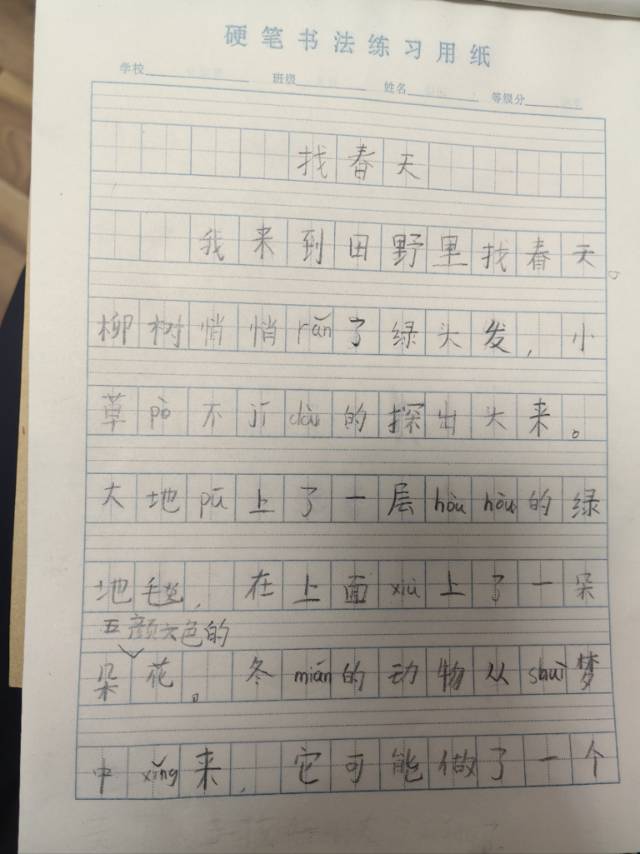 硬笔书法练习用纸
学校 班级 姓名 等级分
找春天
我来到田野里找春天。
柳树悄悄rǎn了绿头发，小
草pò不jí dài的探出头来。
大地pū上了一层hòu hòu的绿
地毛毯，在上面xiù上了一朵
五颜六色的
朵花。冬mián的动物从shuì梦
中xǐng来，它可能做了一个